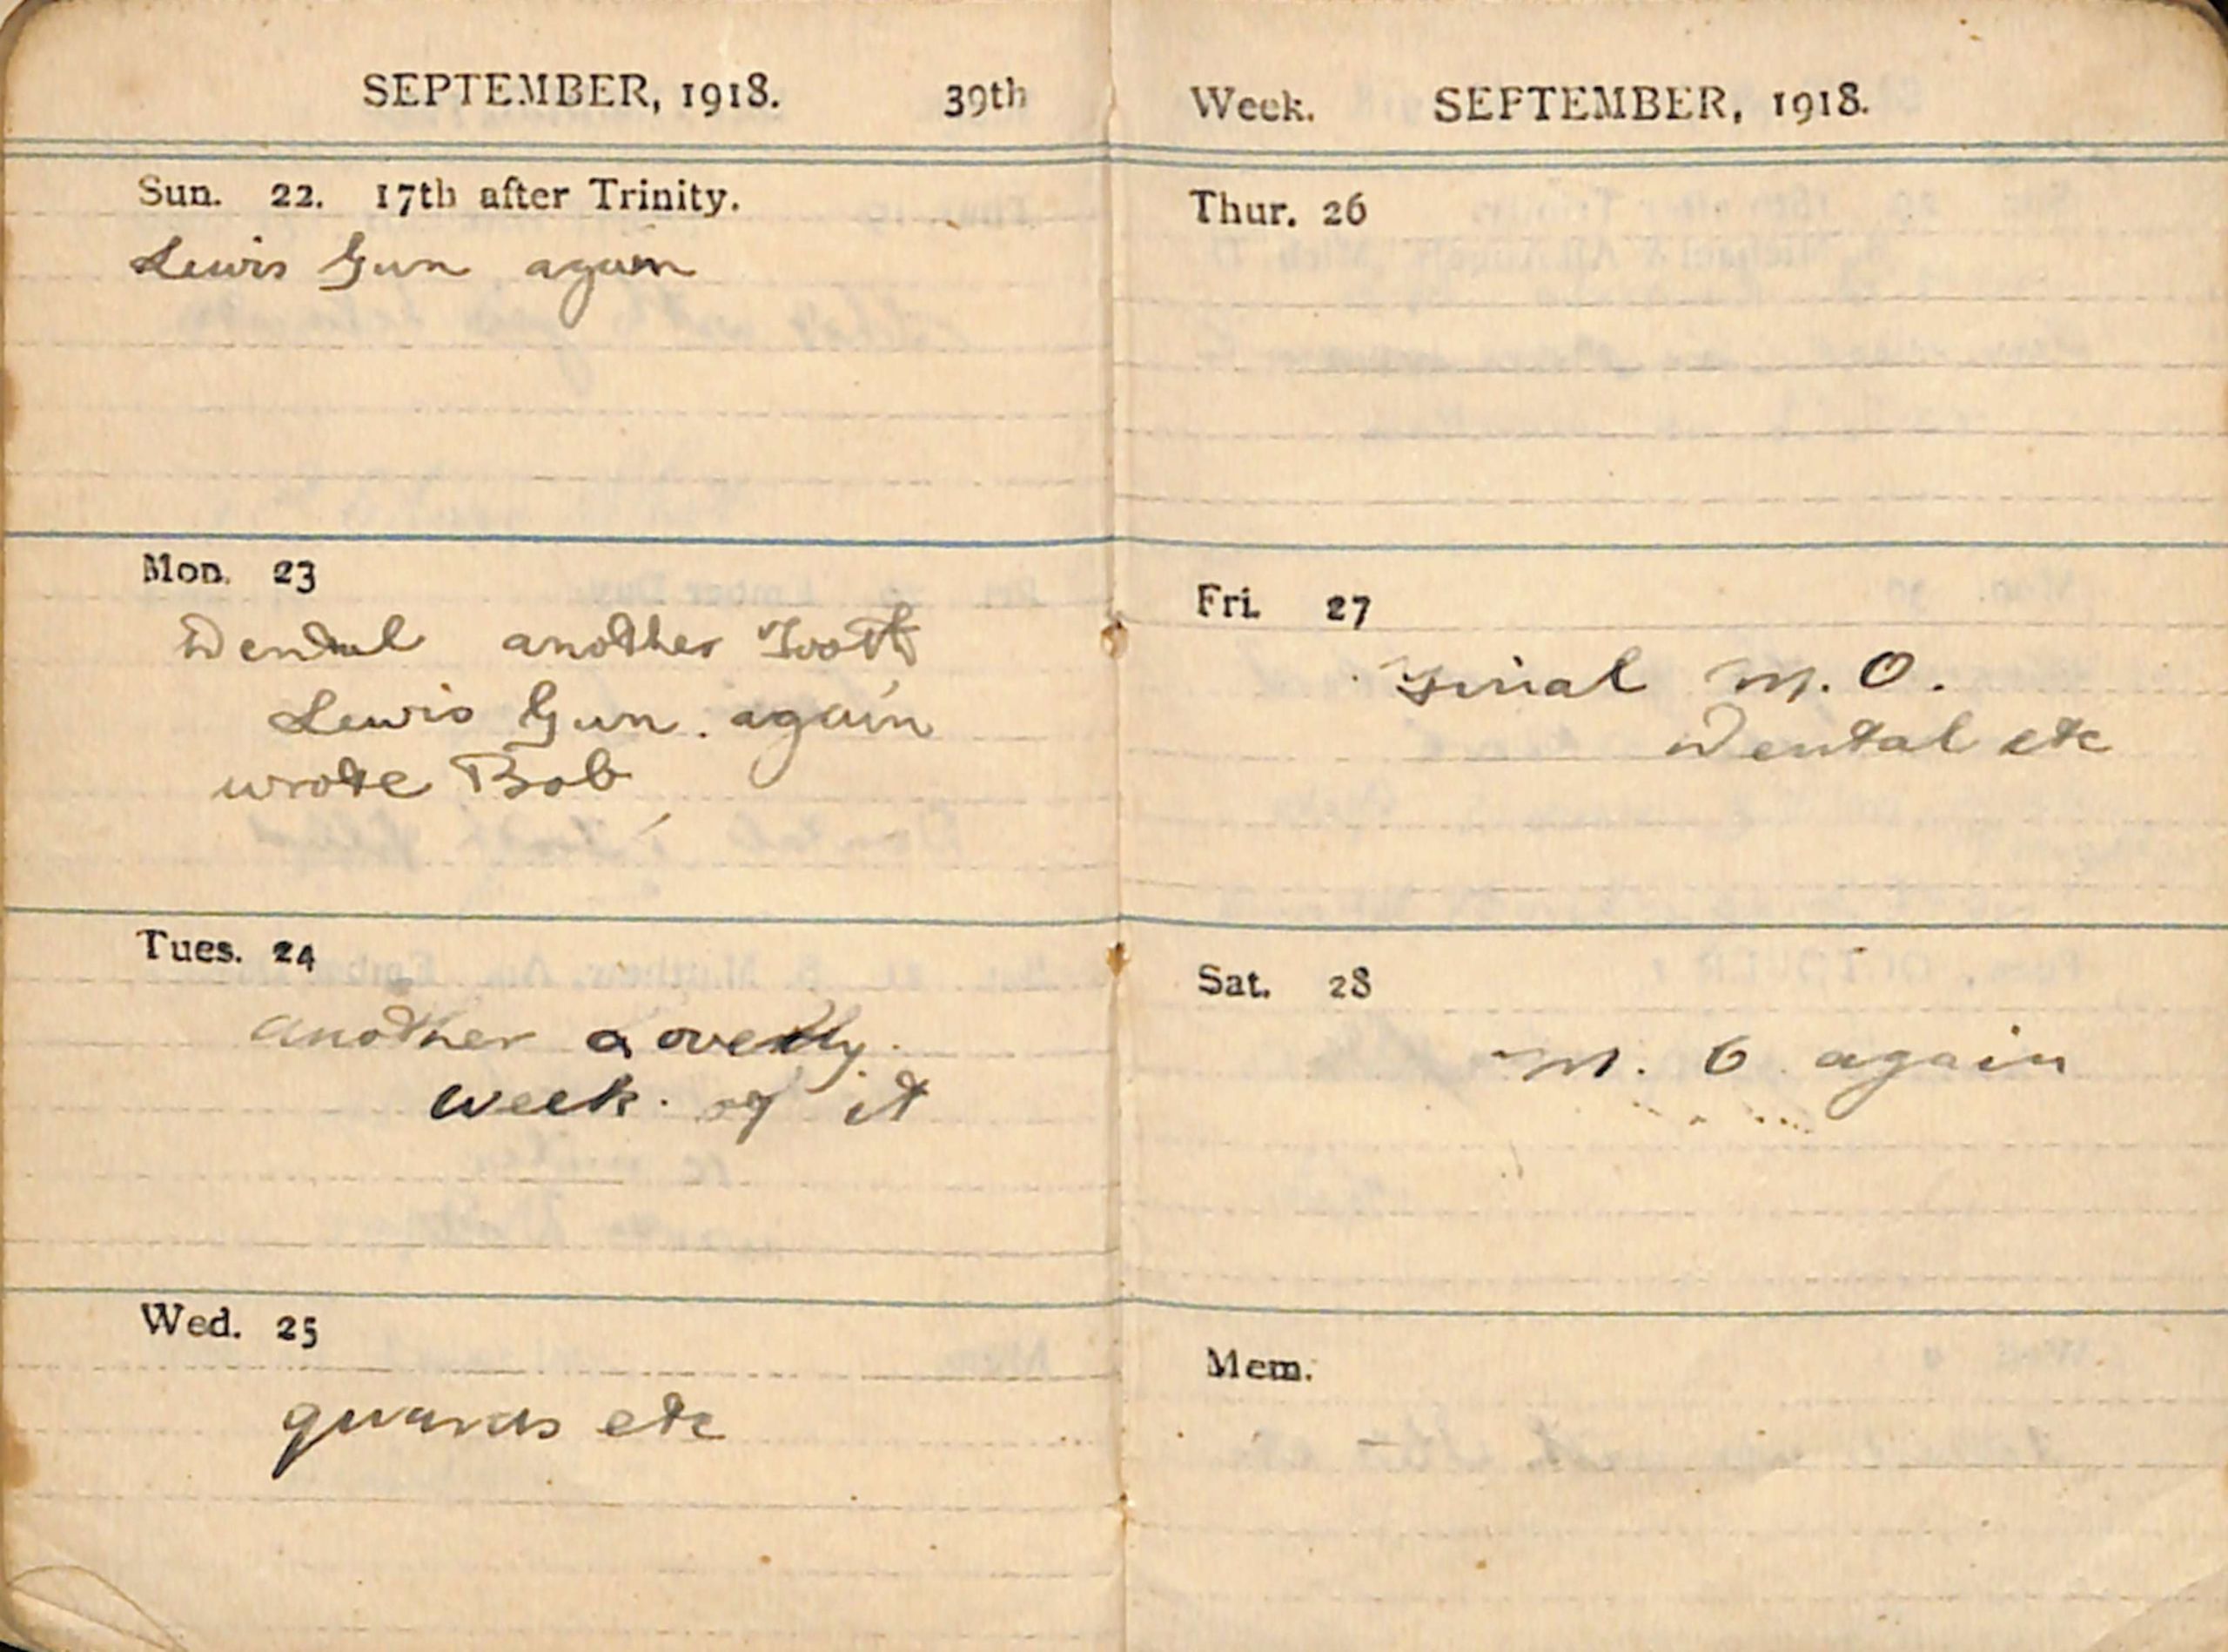 SEPTEMBER, 1918. 39th
Sun. 22. 17th after Trinity.
Lewis Gun again
Mon. 23
Dental another Tooth
Lewis Gun. again
wrote Bob
Tues. 24
another a
week. of it
Wed. 25
guards etc
Week. SEPTEMBER, 1918.
Thur. 26
Fri. 27
Final M.O.
Dental etc
Sat. 28
M. O again
Mem.